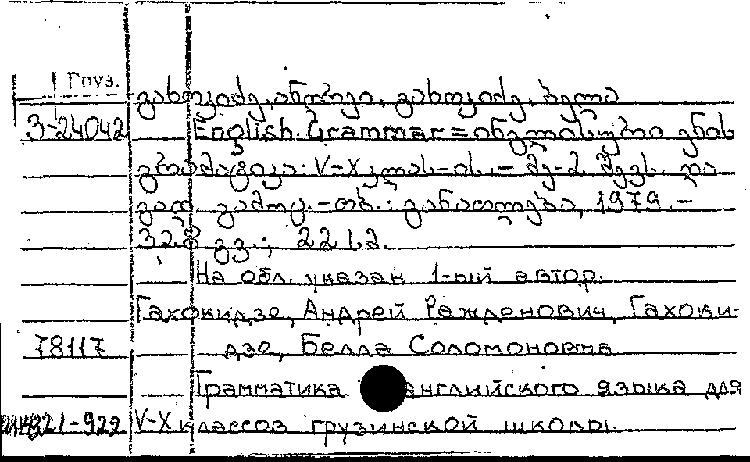 Груз.
გახოკიძე, ანდრეი, გახოკიძე, ბელა
3-24042 English Grammar = ინგლისური ენის
გრამატიკა: V-X კლას-ის. – მე-2 შევს. და
გად. გამოც. – თბ.: განათლება, 1979. –
328 გვ.; 22 სმ.
На обл. указан 1-ый автор.
Гахокидзе, Андрей Ражденович, Гахоки-
78117 дзе, Белла Соломоновна
Грамматика английского языка для
V-X классов грузинской школы.